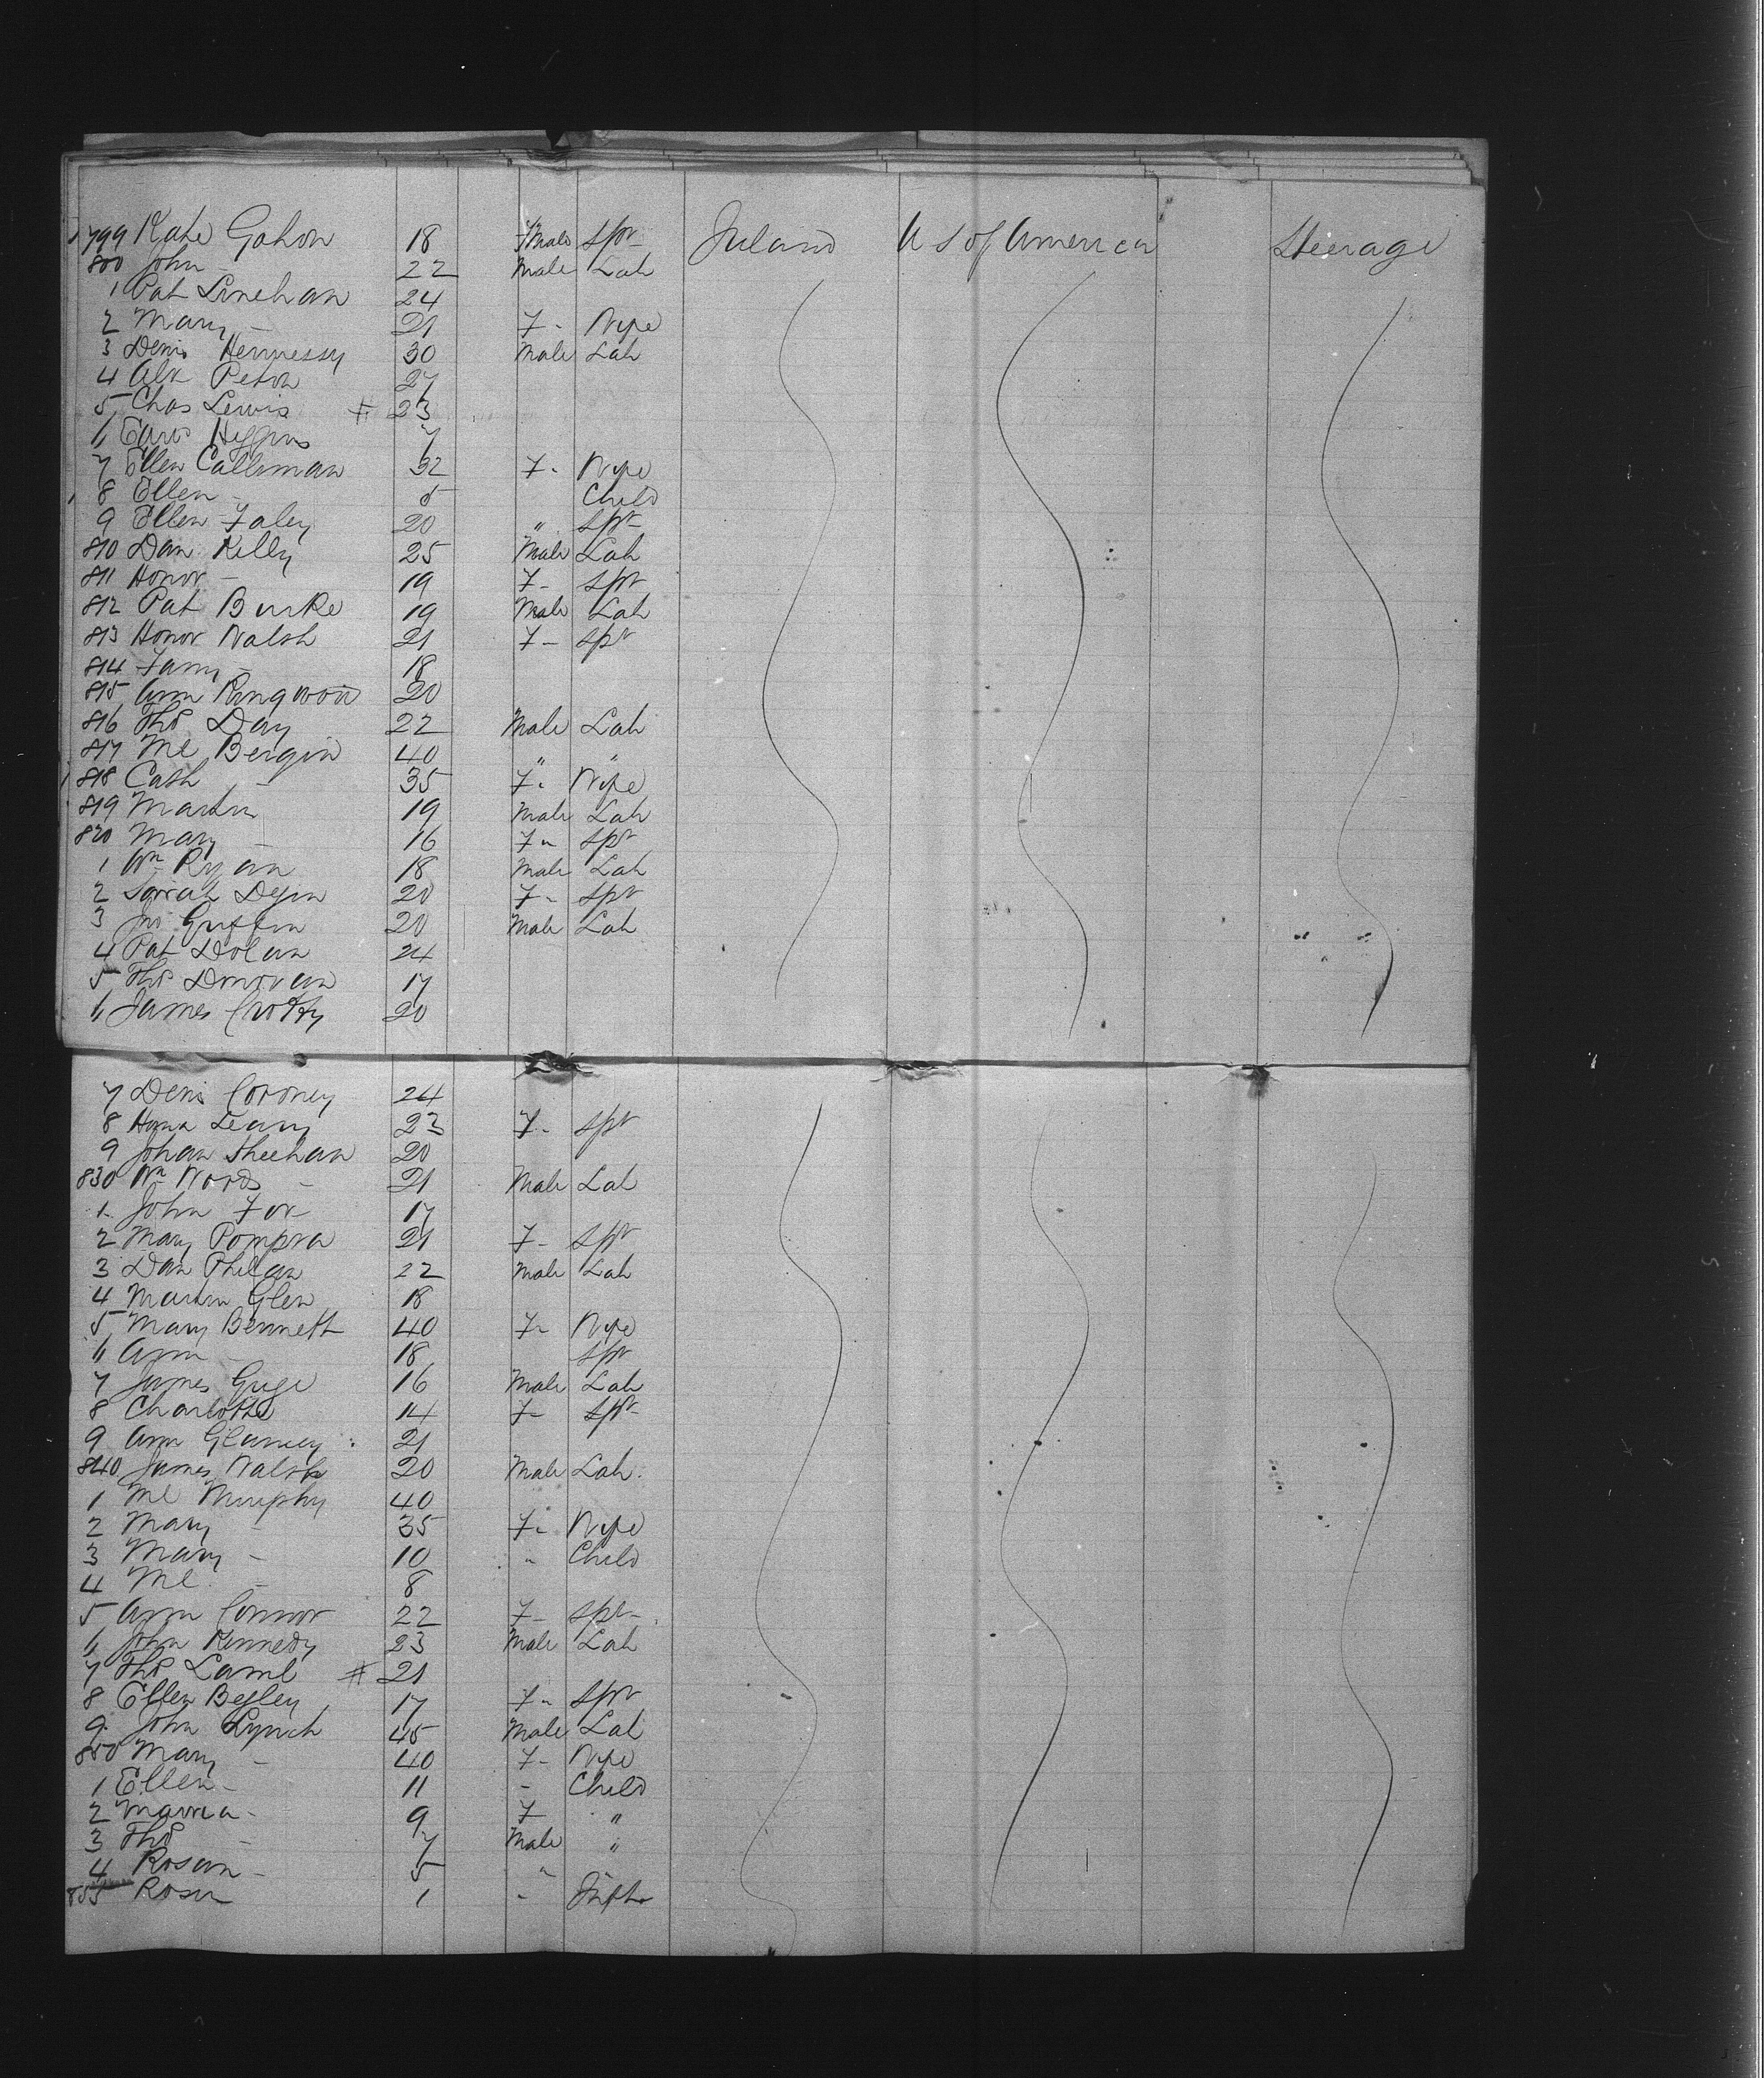 799 Kate Gahon 18 fMale Spr Ireland U S of America Steerage
800 John - 22 Male Lab
1 Pat Linehan 24
2 Mary - 21 F- Wife
3 Denis Hennessy 30 Male Lab
4 Alx Peton 27
5 Chas Lewis # 23
6 Higgins 7
7 Ellen Calliman 32 F- Wife
8 Ellen - 5 Child
9 Ellen Foley 20 " Spr
810 Dan Kelly 25 Male Lab
811 Honor - 19 F- Spr
812 Pat Burke 19 Male Lab
813 Honor Walsh 21 F- Spr
814 Fanny - 18
815 Ann Ringwood 20
816 Thos Day 22 Male Lab
817 Ml Bergin 40 " "
818 Cath - 35 F- Wife
819 Martin - 19 Male Lab
820 Mary - 16 F- Spr
1 Wm Ryan 18 Male Lab
2 Sarrah Dyin 20 F- Spr
3 Jno Griffin 20 Male Lab
4 Pat Dolan 24
5 Thos Donovan 17
6 James Crotty 20
7 Denis Coroney 24
8 Hana Leary 23 F- Spr
9 Johan Sheehan 20
830 Wm Woods - 21 Male Lab
1 John Fox 17
2 Mary Pompra 21 F- Spr
3 Dan Phelan 22 Male Lab
4 Martin Glen 18
5 Mary Bennett 40 F- Wife
6 Ann - 18 Spr
7 James 16 Male Lab
8 Charlotte 14 F- Spr
9 Ann Glancey 21
840 James Walsh 20 Male Lab
1 Ml Murphy 40
2 Mary - 35 F- Wife
3 Mary - 10 - Child
4 Ml - 8
5 Ann Connor 22 F- Spr
6 John Kennedy 23 Male Lab
7 Thos Laml # 21
8 Ellen Begley 17 F- Spr
9 John Lynch 45 Male Lab
850 Mary - 40 F- Wife
1 Ellen - 11 - Child
2 Maria - 9 F "
3 Thos - 7 Male "
4 Rosan - 5 "
855 Rosa 1 - Inft